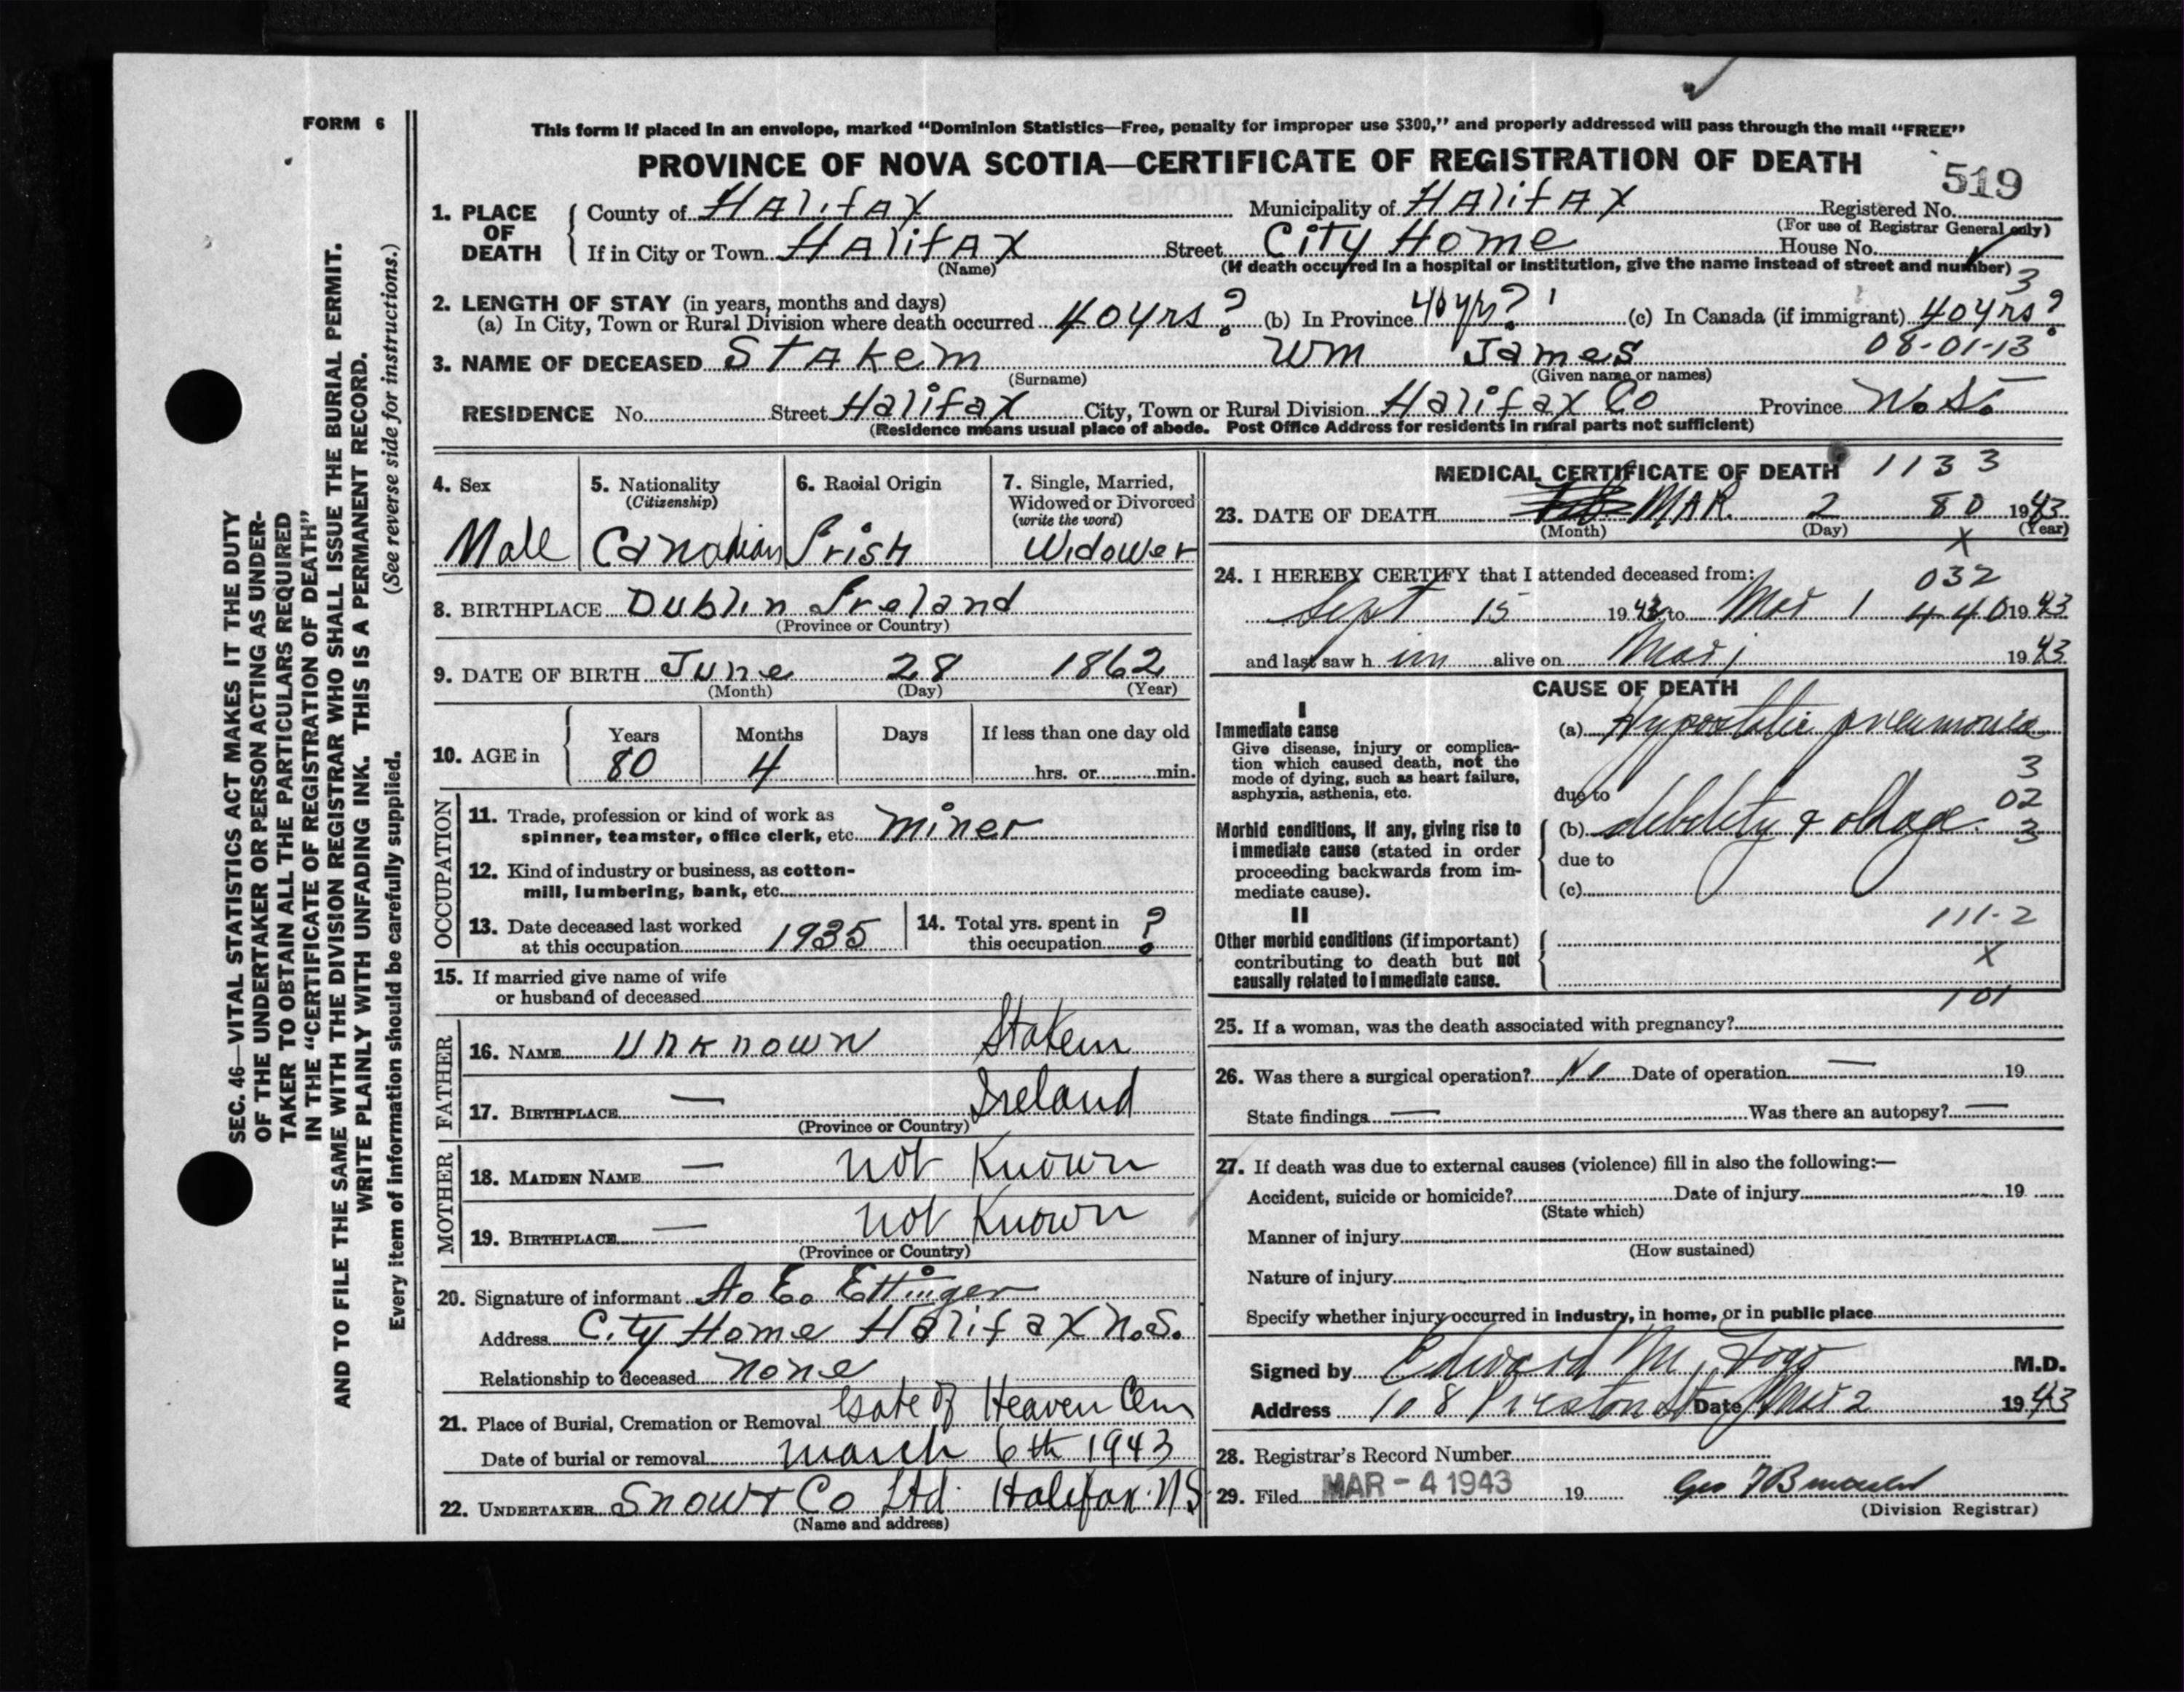 FORM 6
This form if placed in an envelope, marked "Dominion Statistics—Free, penalty for improper use $300," and properly addressed will pass through the mail "FREE"
PROVINCE OF NOVA SCOTIA—CERTIFICATE OF REGISTRATION OF DEATH
519
1. PLACE OF DEATH
County of Halifax Municipality of Halifax Registered No.
(For use of Registrar General only)
If in City or Town Halifax Street City Home House No.
(Name) (If death occurred in a hospital or institution, give the name instead of street and number)
3
2. LENGTH OF STAY (in years, months and days)
(a) In City, Town or Rural Division where death occurred 40 yrs ? (b) In Province 40 yrs? (c) In Canada (if immigrant) 40 yrs ?
08-01-13
3. NAME OF DECEASED Stakem Wm James
(Surname) (Given name or names)
RESIDENCE No. Street Halifax City, Town or Rural Division Halifax Co Province N.S.
(Residence means usual place of abode. Post Office Address for residents in rural parts not sufficient)
4. Sex
Male
5. Nationality
(Citizenship)
Canadian
6. Racial Origin
Irish
7. Single, Married,
Widowed or Divorced
(write the word)
Widower
8. BIRTHPLACE Dublin Ireland
(Province or Country)
9. DATE OF BIRTH June 28 1862
(Month) (Day) (Year)
10. AGE in
Years Months Days If less than one day old
80 4 hrs. or min.
OCCUPATION
11. Trade, profession or kind of work as
spinner, teamster, office clerk, etc. miner
12. Kind of industry or business, as cotton-
mill, lumbering, bank, etc.
13. Date deceased last worked
at this occupation 1935
14. Total yrs. spent in
this occupation ?
15. If married give name of wife
or husband of deceased
FATHER
16. NAME Unknown Stakem
17. BIRTHPLACE — Ireland
(Province or Country)
MOTHER
18. MAIDEN NAME — not Known
19. BIRTHPLACE — not Known
(Province or Country)
20. Signature of informant A. E. Ettinger
Address City Home Halifax N.S.
Relationship to deceased none
21. Place of Burial, Cremation or Removal Gate of Heaven Cem
Date of burial or removal march 6th 1943
22. UNDERTAKER Snow & Co Ltd. Halifax. NS
(Name and address)
MEDICAL CERTIFICATE OF DEATH 1133
23. DATE OF DEATH MAR. 2 80 1943
(Month) (Day) (Year)
X
24. I HEREBY CERTIFY that I attended deceased from:
032
Sept 15 1942 to Mar 1 440 1943
and last saw him alive on Mar 1 1943
CAUSE OF DEATH
I
Immediate cause
Give disease, injury or complica-
tion which caused death, not the
mode of dying, such as heart failure,
asphyxia, asthenia, etc.
(a) Hypostatic pneumonia
3
due to
02
Morbid conditions, if any, giving rise to
immediate cause (stated in order
proceeding backwards from im-
mediate cause).
(b) debility & old age. 3
due to
(c)
II
111-2
Other morbid conditions (if important)
contributing to death but not
causally related to immediate cause.
X
101
25. If a woman, was the death associated with pregnancy?
26. Was there a surgical operation? No Date of operation — 19
State findings — Was there an autopsy? —
27. If death was due to external causes (violence) fill in also the following:—
Accident, suicide or homicide? Date of injury 19
(State which)
Manner of injury
(How sustained)
Nature of injury
Specify whether injury occurred in industry, in home, or in public place
Signed by Edward M. Fogo M.D.
Address 108 Preston St Date Mar 2 1943
28. Registrar's Record Number
29. Filed MAR - 4 1943 19
(Division Registrar)
SEC. 46—VITAL STATISTICS ACT MAKES IT THE DUTY
OF THE UNDERTAKER OR PERSON ACTING AS UNDER-
TAKER TO OBTAIN ALL THE PARTICULARS REQUIRED
IN THE "CERTIFICATE OF REGISTRATION OF DEATH"
AND TO FILE THE SAME WITH THE DIVISION REGISTRAR WHO SHALL ISSUE THE BURIAL PERMIT.
WRITE PLAINLY WITH UNFADING INK. THIS IS A PERMANENT RECORD.
Every item of information should be carefully supplied. (See reverse side for instructions.)